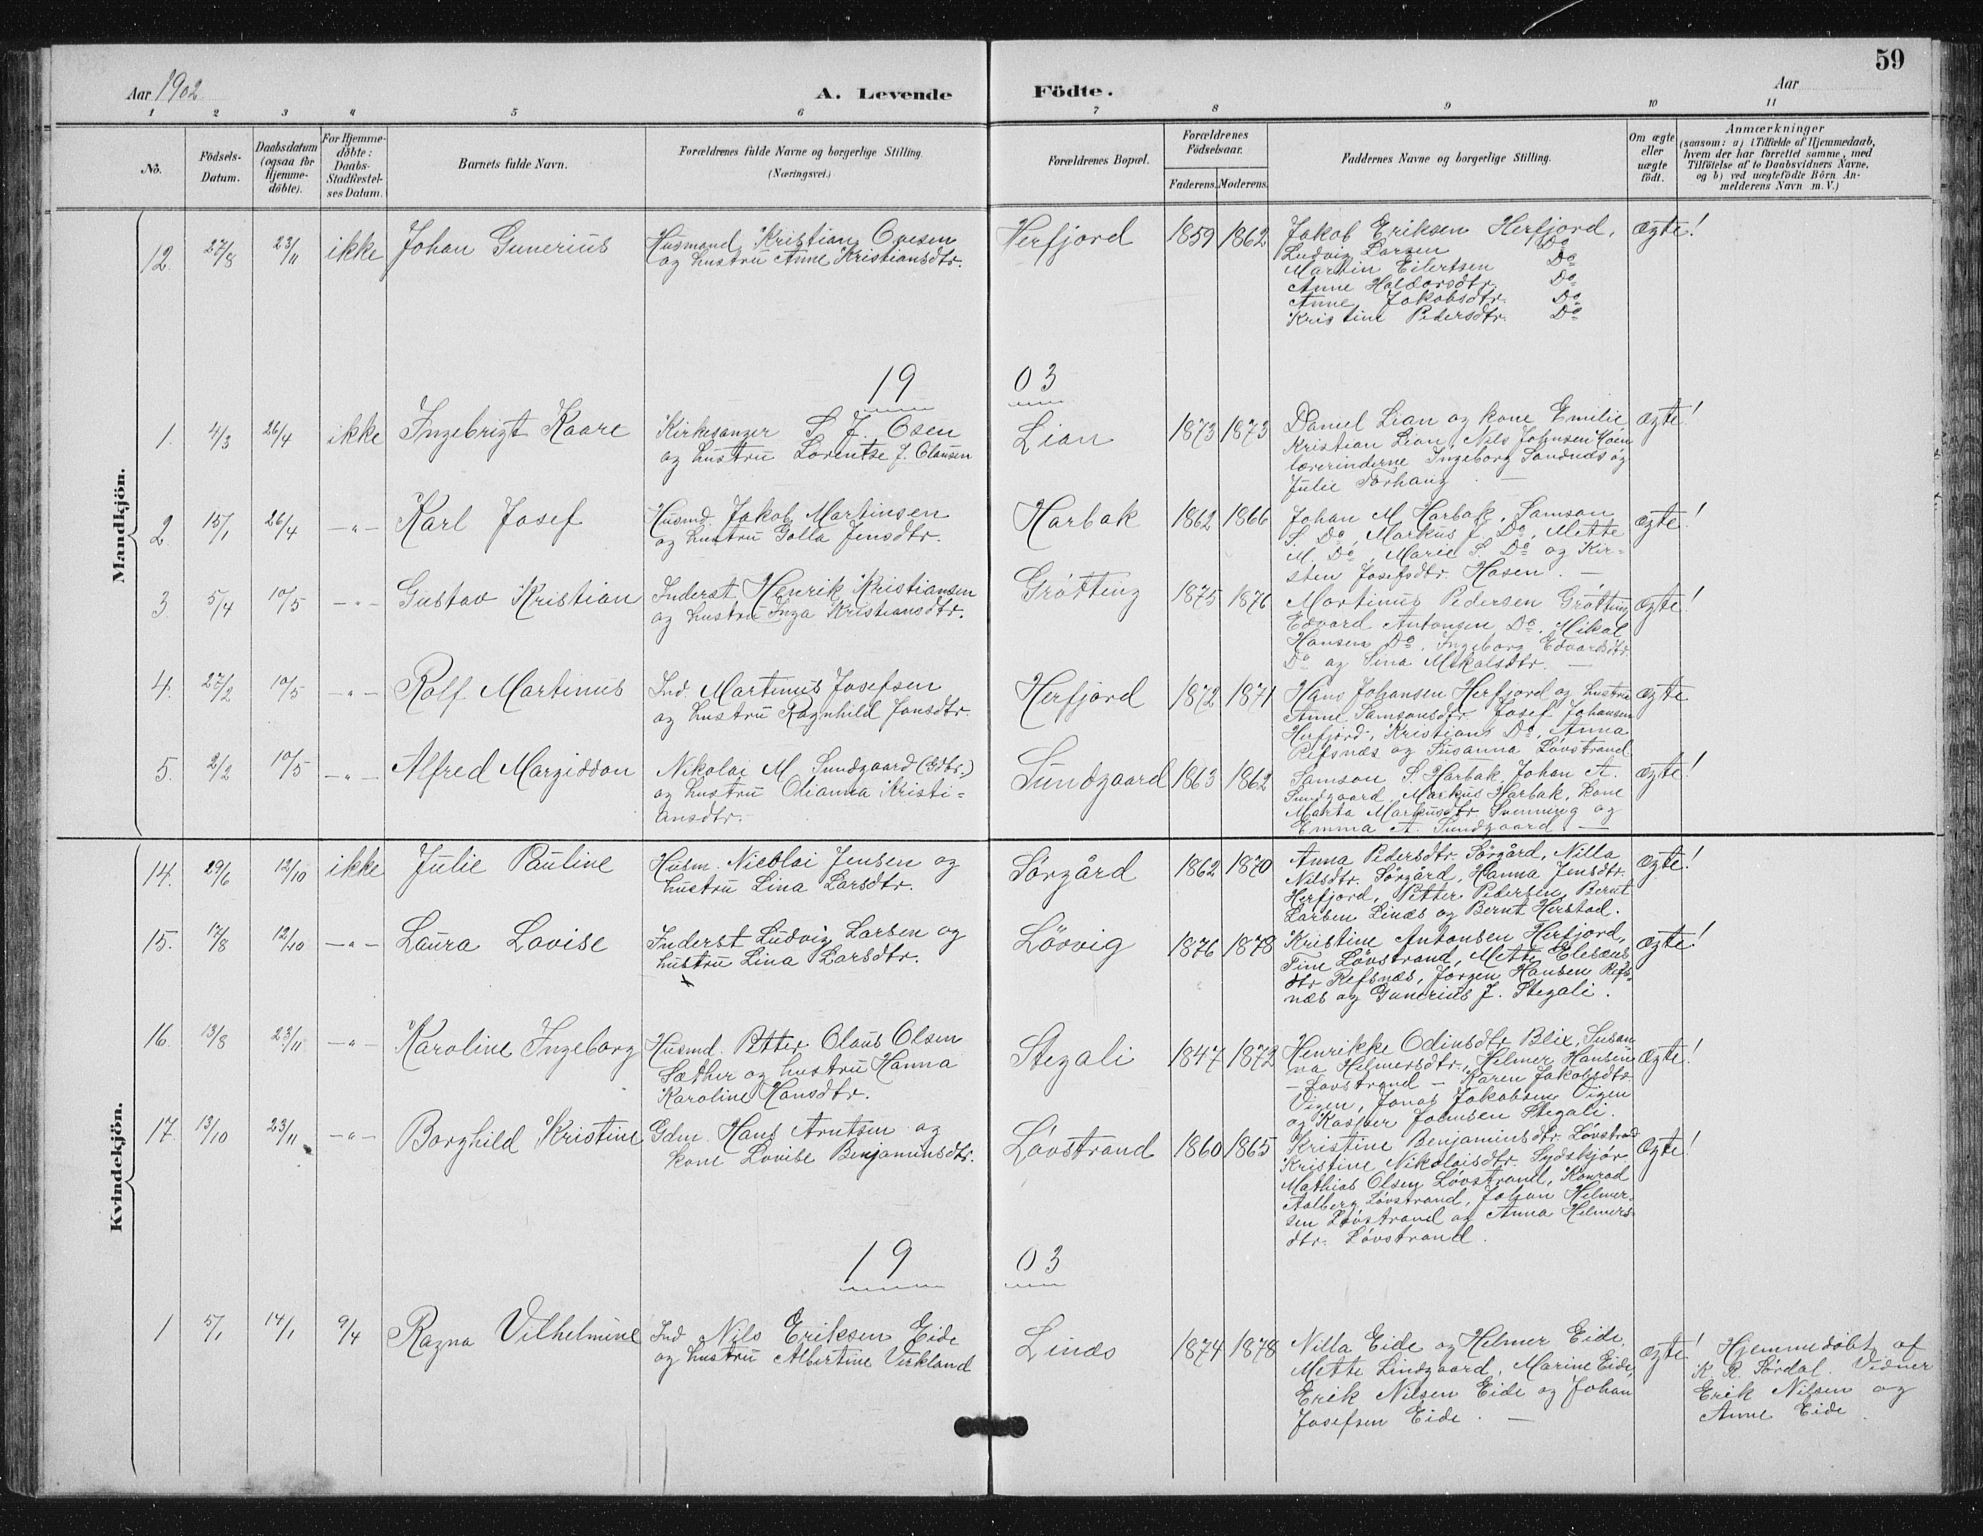 59
Aar 1902.
A. Levende Födte.
Aar
1 2 3 4 5 6 7 8 9 10 11
No.
Födsels-Datum.
Daabsdatum (ogsaa for Hjemme-döbte).
For Hjemme-döbte: Daabs-Stadfestel-ses Datum.
Barnets fulde Navn.
Forældrenes fulde Navne og borgerlige Stilling.
(Næringsvei.)
Forældrenes Bopæl.
Forældrenes Födselsaar.
Faderens. Moderens.
Faddernes Navne og borgerlige Stilling.
Om ægte eller uægte födt.
Anmærkninger
(saasom: a) i Tilfælde af Hjemmedaab,
hvem der har forrettet samme, med
Tilföielse af to Daabsvidners Navne,
og b) ved uægtefödte Börn An-
melderens Navn m. V.)
Mandkjön.
12. 27/8 23/11 ikke Johan Gunerius
Husmand Kristian Olesen
og hustru Anne Kristiansdtr.
Herfjord 1859 1862
Jakob Eriksen Herfjord,
Ludvig Larsen Do
Martin Eilertsen Do
Anne Haldorsdtr. Do
Anne Jakobsdtr. Do
Kristine Pedersdtr. Do
ægte!
19 03
1. 4/3 26/4 ikke Ingebrigt Kaare
Kirkesanger S. J. Osen
og hustru Lorentse J. Clausen
Lian 1873 1873
Daniel Lian og kone Emilie
Kristian Lian, Nils Johnsen
lærerinderne Ingeborg Sandnes og
Julie Torhaug. —
ægte!
2 15/1 26/4 -"- Karl Josef
Husmd. Jakob Martinsen
og hustru Golla Jensdtr.
Harbak 1862 1866
Johan M. Harbak, Samson
S. Do, Markus J. Do, Mette
M. Do, Marie S. Do og Kir-
sten Josefsdtr. Hosen. —
ægte!
3 5/4 10/5 -"- Gustav Kristian
Inderst Henrik Kristiansen
og hustru Inga Kristiansdtr.
Grøtting 1875 1876
Martinus Pedersen Grøtting
Edvard Antonsen Do, Mikal
Hansen Do, Ingeborg Edvardsdtr.
Do og Sina Mikalsdtr. —
ægte!
4. 27/2 10/5 -"- Rolf Martinus
Ind Martinus Josefsen
og hustru Ragnhild Jonsdtr.
Herfjord 1872 1871
Hans Johansen Herfjord og hustru
Anne Samsonsdtr. Josef Johansen
Herfjord, Kristians Do, Anna
Refsnæs og Susanna Løvstrand
ægte
5. 2/2 10/5 -"- Alfred Margiddon
Nikolai M. Sundgaard (Gdbr.)
og hustru Olianna Kristi-
ansdtr.
Sundgaard 1863 1862
Samson S. Harbak, Johan A.
Sundgaard, Markus Harbak, kone
Marta Markusdtr. Svenning og
Emma A. Sundgaard. —
ægte!
Kvindekjön.
14. 29/6 12/10 ikke Julie Pauline
Husm. Nicolai Jensen og
hustru Lina Larsdtr.
Sørgård 1862 1870
Anna Pedersdtr. Sørgård, Nilla
Nilsdtr. Sørgård, Hanna Jensdtr.
Herfjord, Petter Pedersen, Bernt
Larsen Linæs og Bernt Herstad.
ægte!
15. 17/8 12/10 -"- Laura Lovise
Inderst Ludvig Larsen og
hustru Lina Larsdtr.
Løvvig 1876 1878
Kristine Antonsen Herfjord,
Tine Løvstrand, Mette Eleseus-
dtr Refsnæs, Jørgen Hansen Refs-
næs og Gunerius J. Stegali.
ægte!
16. 13/8 23/11 -"- Karoline Ingeborg
Husmd. Petter Olaus Olsen
Sæther og hustru Hanna
Karoline Hansdtr.
Stegali 1847 1872
Henrikke Odinsdtr Blix, Susan-
na Helmersdtr, Helmer Hansen
— Løvstrand — Karen Jakobsdtr
Vigen, Jonas Jakobsen Vigen
og Kasper Johnsen Stegali.
ægte!
17. 13/10 23/11 -"- Borghild Kristine
Gdm. Hans Arntsen og
kone Lovise Benjaminsdtr.
Løvstrand 1860 1865
Kristine Benjaminsdtr. Løvstrand
Kristine Nikolaisdtr. Sydskjør
Mathias Olsen Løvstrand, Konrad
Aalberg Løvstrand, Johan Helmer-
sen Løvstrand og Anna Helmers-
dtr. Løvstrand.
ægte!
19 03
1 5/1 14/1 9/4 Ragna Vilhelmine
Ind Nils Eriksen Eide
og hustru Albertine Virkland
Linæs 1874 1878
Nilla Eide og Helmer Eide
Mette Lindgaard, Marine Eide,
Erik Nilsen Eide og Johan
Josefsen Eide. —
ægte!
Hjemmedøbt af
K. R. Sørdal. Vidner
Erik Nilsen og
Anne Eide.